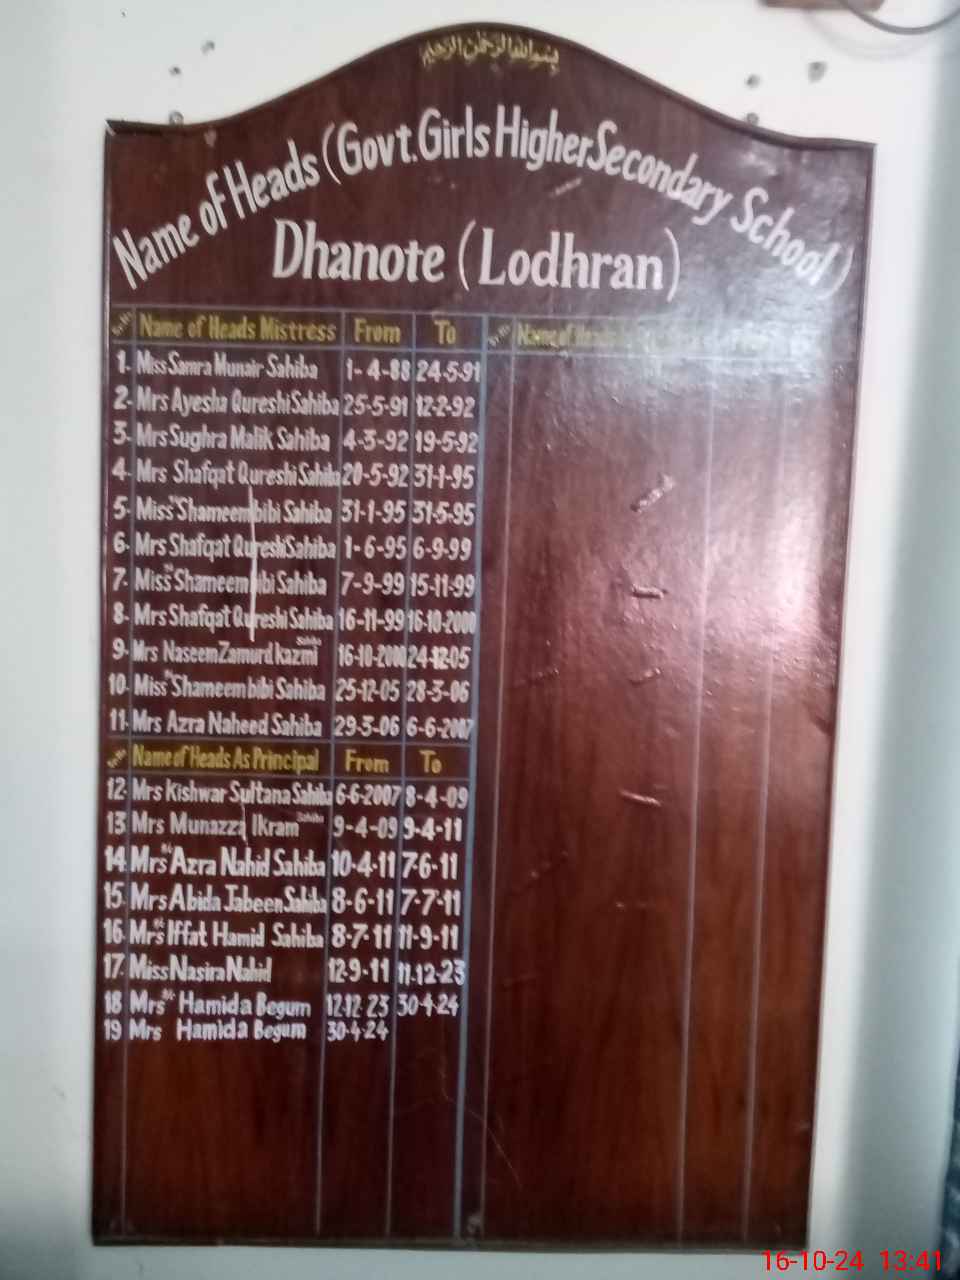 بسم الله الرحمن الرحيم
Name of Heads (Govt. Girls Higher Secondary School)
Dhanote (Lodhran)
Name of Heads Mistress From To
1- Miss Samra Munair Sahiba 1-4-88 24-5-91
2- Mrs Ayesha Qureshi Sahiba 25-5-91 12-2-92
3- Mrs Sughra Malik Sahiba 4-3-92 19-5-92
4- Mrs Shafqat Qureshi Sahiba 20-5-92 31-1-95
5- Miss Shameem bibi Sahiba 31-1-95 31-5-95
6- Mrs Shafqat Qureshi Sahiba 1-6-95 6-9-99
7- Miss Shameem bibi Sahiba 7-9-99 15-11-99
8- Mrs Shafqat Qureshi Sahiba 16-11-99 16-10-2000
9- Mrs Naseem Zamurd kazmi Sahiba 16-10-2000 24-12-05
10- Miss Shameem bibi Sahiba 25-12-05 28-3-06
11- Mrs Azra Naheed Sahiba 29-3-06 6-6-2007
Name of Heads As Principal From To
12- Mrs Kishwar Sultana Sahiba 6-6-2007 8-4-09
13 Mrs Munazza Ikram Sahiba 9-4-09 9-4-11
14 Mrs Azra Nahid Sahiba 10-4-11 7-6-11
15- Mrs Abida Jabeen Sahiba 8-6-11 7-7-11
16 Mrs Iffat Hamid Sahiba 8-7-11 11-9-11
17- Miss Nasira Nahid 12-9-11 11-12-23
18 Mrs Hamida Begum 12-12-23 30-4-24
19 Mrs Hamida Begum 30-4-24
Name of Heads
16-10-24 13:41